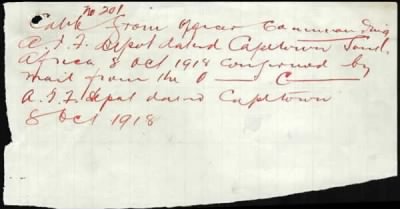 No 201
Cable from Officer Commanding
A.I.F. Depot dated Capetown South
Africa 8 Oct 1918 confirmed by
mail from the O —— C ——
A.I.F. Depot dated Capetown
8 Oct 1918